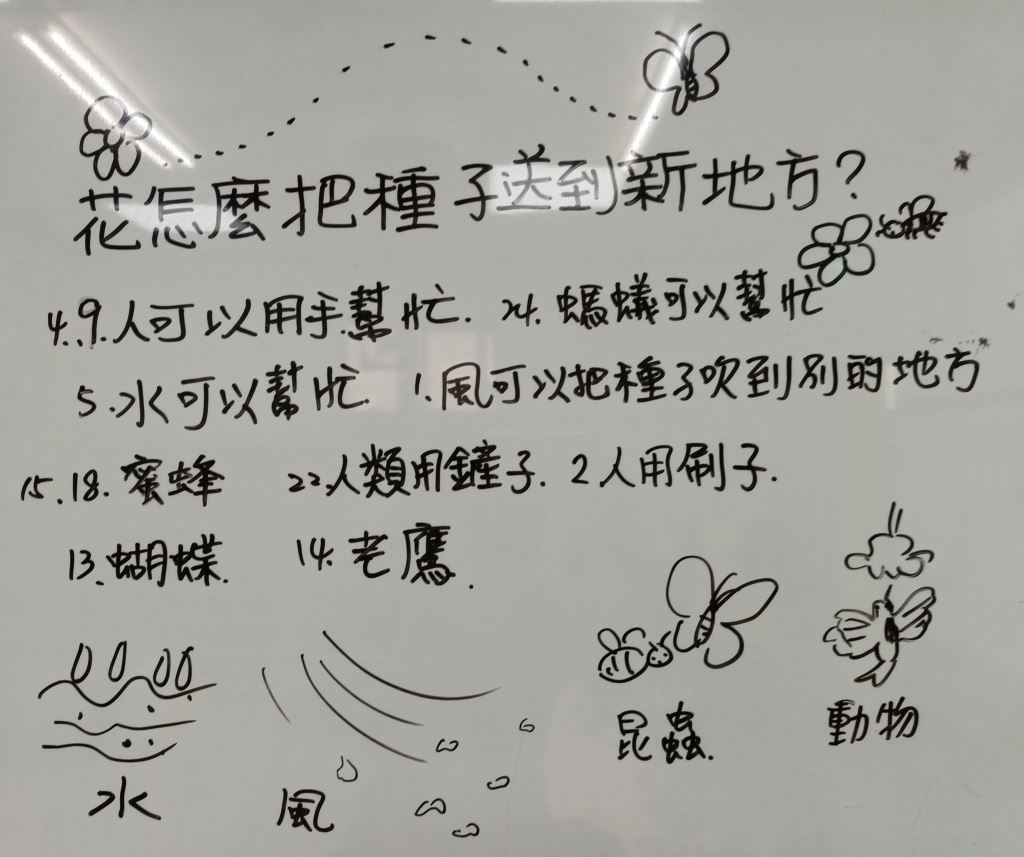 花怎麼把種子送到新地方?
4.9.人可以用手幫忙. 24. 螞蟻可以幫忙
5.水可以幫忙. 1.風可以把種子吹到別的地方
15.18.蜜蜂 22.人類用鏟子. 2人用刷子.
13.蝴蝶. 14.老鷹.
水 風 昆蟲. 動物